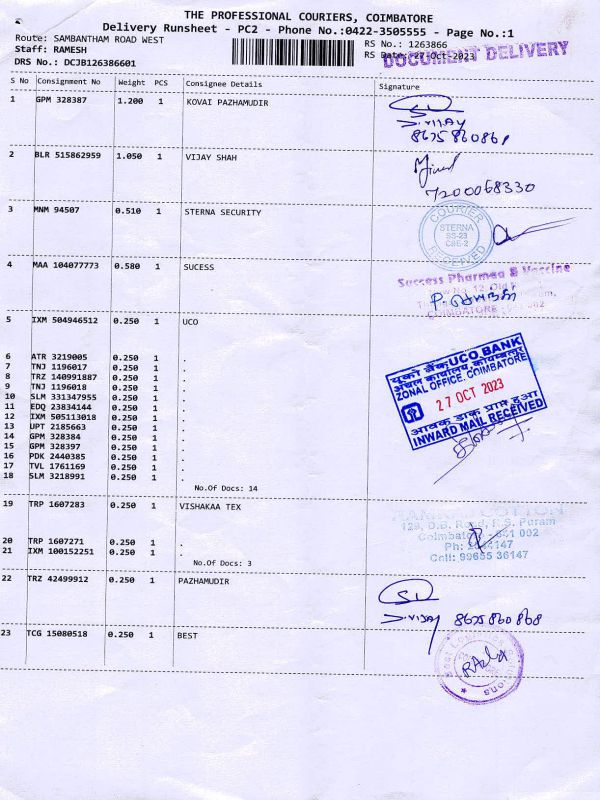 THE PROFESSIONAL COURIERS, COIMBATORE
Delivery Runsheet - PC2 - Phone No.:0422-3505555 - Page No.:1
Route: SAMBANTHAM ROAD WEST
RS No.: 1263866
Staff: RAMESH
RS Date: 27-Oct-2023
DOCUMENT DELIVERY
DRS No.: DCJB126386601
S No Consignment No Weight PCS Consignee Details Signature
1 GPM 328387 1.200 1 KOVAI PAZHAMUDIR
S.VIJAY
2 BLR 515862959 1.050 1 VIJAY SHAH
7200068330
3 MNM 94507 0.510 1 STERNA SECURITY
COURIER
STERNA
SS-23
CBE-2
RECEIVED
4 MAA 104077773 0.580 1 SUCESS
Success Pharmea & Vaccine
COIMBATORE
5 IXM 504946512 0.250 1 UCO
6 ATR 3219005 0.250 1 .
7 TNJ 1196017 0.250 1 .
8 TRZ 140991887 0.250 1 .
9 TNJ 1196018 0.250 1 .
10 SLM 331347955 0.250 1 .
11 EDQ 23834144 0.250 1 .
12 IXM 505113018 0.250 1 .
13 UPT 2185663 0.250 1 .
14 GPM 328384 0.250 1 .
15 GPM 328397 0.250 1 .
16 PDK 2440385 0.250 1 .
17 TVL 1761169 0.250 1 .
18 SLM 3218991 0.250 1 .
No.Of Docs: 14
यूको बैंक UCO BANK
अंचल कार्यालय, कोयम्बत्तूर
ZONAL OFFICE, COIMBATORE
27 OCT 2023
आवक डाक प्राप्त हुआ
INWARD MAIL RECEIVED
19 TRP 1607283 0.250 1 VISHAKAA TEX
COTTON
129, D.B. Road, R.S. Puram
Coimbatore - 641 002
Ph:
Cell: 99655 36147
20 TRP 1607271 0.250 1 .
21 IXM 100152251 0.250 1 .
No.Of Docs: 3
22 TRZ 42499912 0.250 1 PAZHAMUDIR
S.VIJAY 8675860868
23 TCG 15080518 0.250 1 BEST